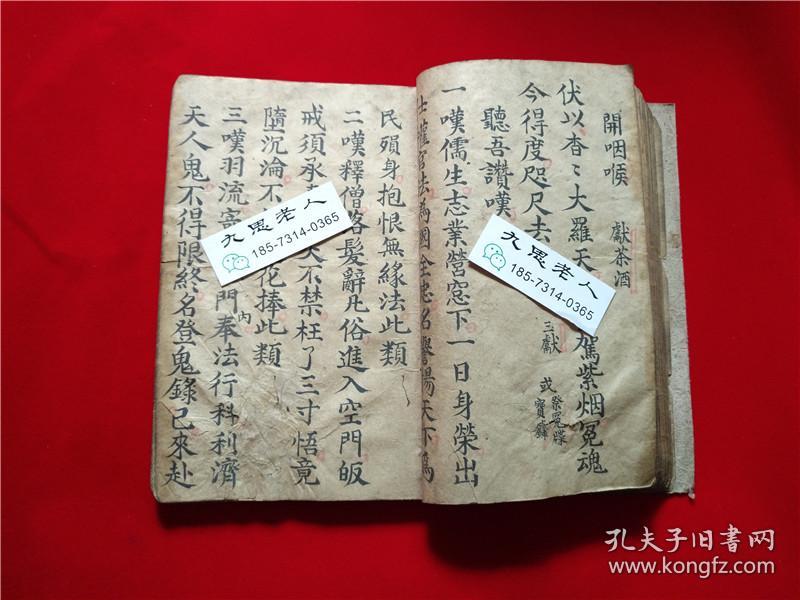 開咽喉 獻茶酒
伏以香〻大羅天 駕紫烟冤魂
今得度咫尺去 三獻 或
聽吾讚嘆
一嘆儒生志業營窓下一日身榮出
為國全忠名譽揚天下為
民殞身抱恨無緣法此類
二嘆釋僧落髮辭凡俗進入空門皈
戒須承 不禁枉了三寸悟竟
墮沉淪不 花捧此類
三嘆羽流 門內奉法行科利濟
天人鬼不得限終名登鬼錄已來赴
九思老人
185-7314-0365
九思老人
185-7314-0365
孔夫子旧书网
www.kongfz.com